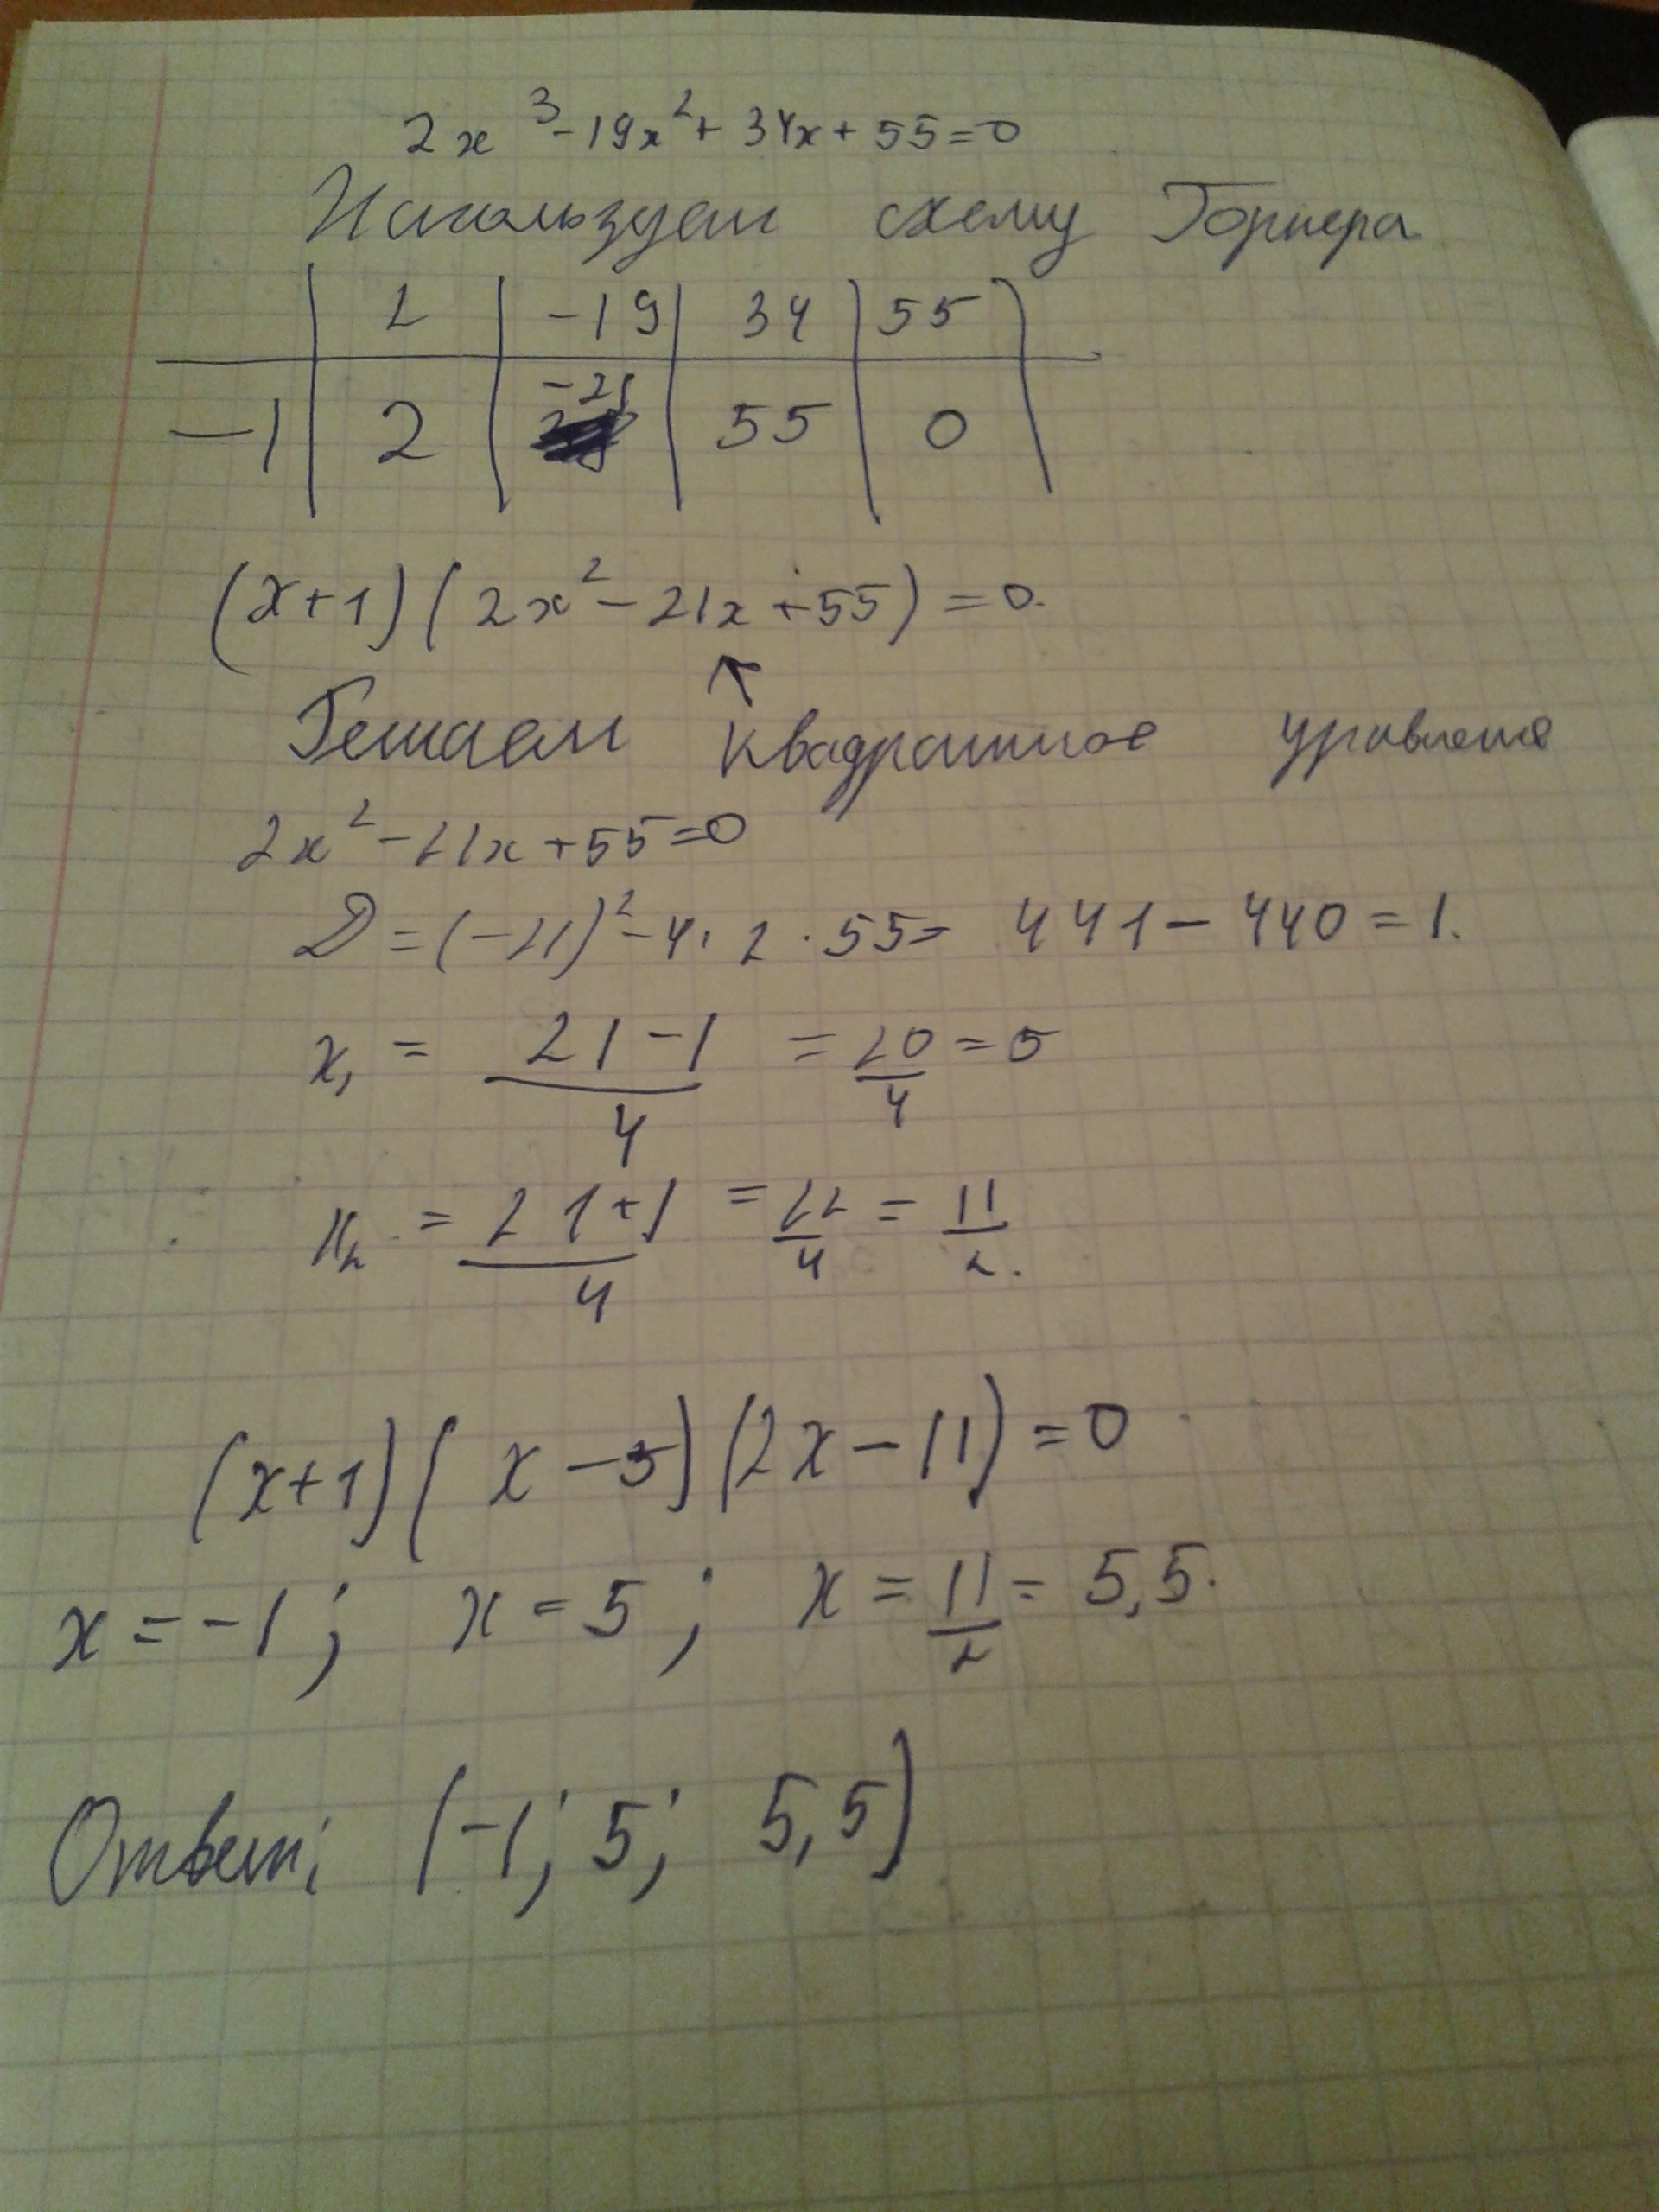 2x³ - 19x² + 34x + 55 = 0
Используем схему Горнера
2 | -19 | 34 | 55
-1 | 2 | -21 | 55 | 0
(x+1)(2x² - 21x + 55) = 0.
↖
Решаем квадратное уравнение
2x² - 21x + 55 = 0
D = (-21)² - 4 · 2 · 55 = 441 - 440 = 1.
x₁ = (21 - 1)/4 = 20/4 = 5
x₂ = (21 + 1)/4 = 22/4 = 11/2.
(x+1)(x-5)(2x-11) = 0
x = -1; x = 5; x = 11/2 = 5,5.
Ответ: (-1; 5; 5,5)